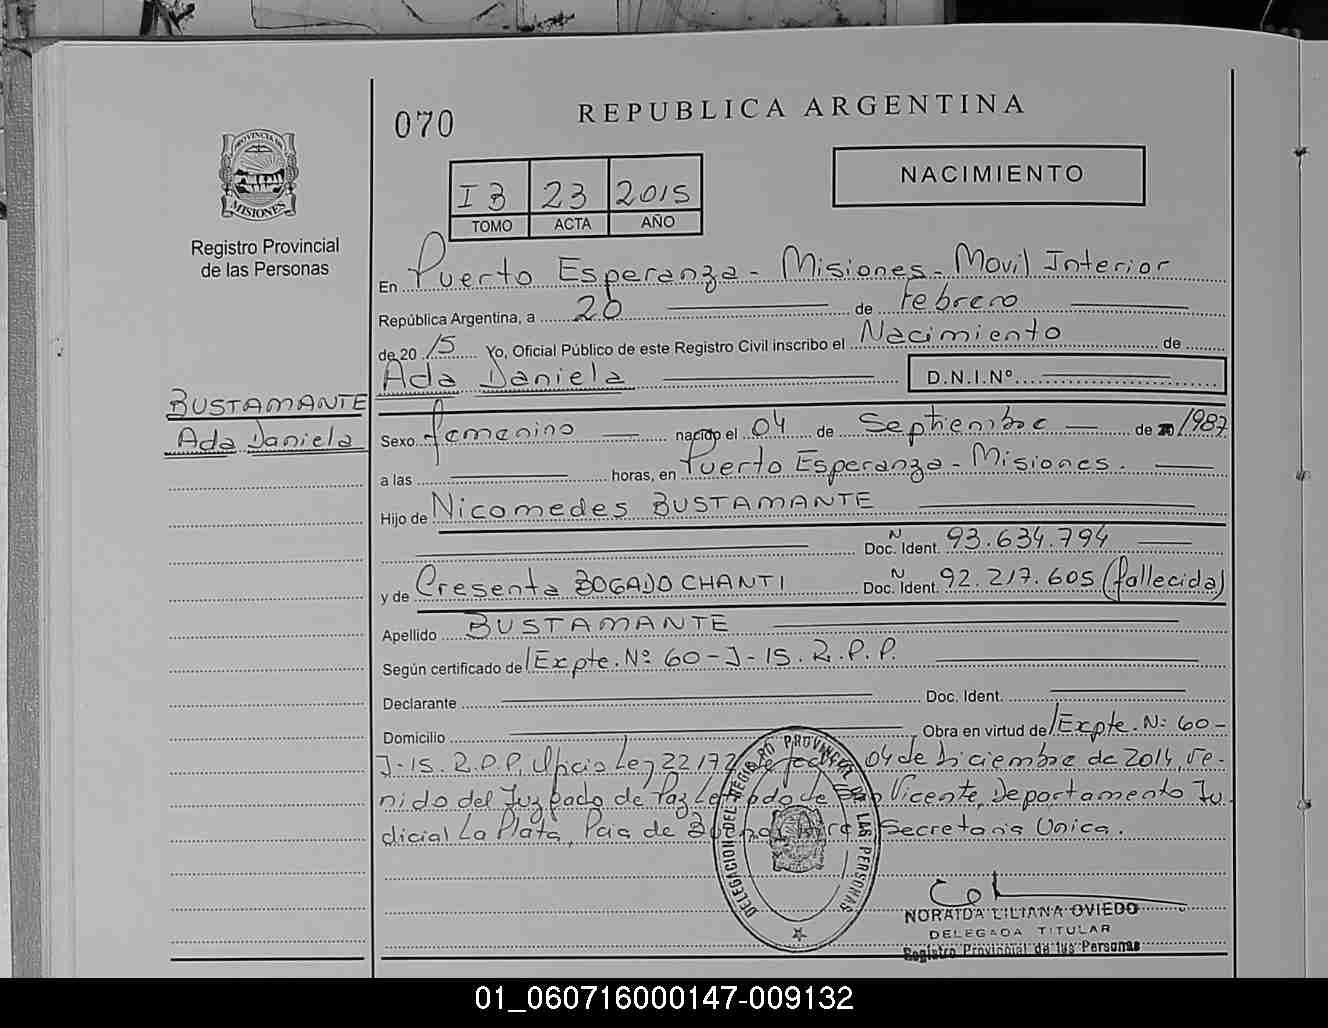 070
REPUBLICA ARGENTINA
PROVINCIA DE
MISIONES
Registro Provincial
de las Personas
I B 23 2015
TOMO ACTA AÑO
NACIMIENTO
En Puerto Esperanza - Misiones - Movil Interior
República Argentina, a 20 de febrero
de 20 15 Yo, Oficial Público de este Registro Civil inscribo el Nacimiento de
Ada Daniela D.N.I.Nº
BUSTAMANTE
Ada Daniela
Sexo femenino nacido el 04 de Septiembre de 1987
a las horas, en Puerto Esperanza - Misiones.
Hijo de Nicomedes BUSTAMANTE
Doc. Ident. N 93.634.794
y de Cresenta BOGADO CHANTI Doc. Ident. N 92.217.605 (fallecida)
Apellido BUSTAMANTE
Según certificado de /Expte. Nº 60-J-15. R.P.P.
Declarante Doc. Ident.
Domicilio Obra en virtud de /Expte. Nº 60-
J-15. R.P.P. Oficio Ley 22172 de fecha 04 de Diciembre de 2014, ve-
nido del Juzgado de Paz Letrado de Vicente, Departamento Ju-
dicial La Plata, Pcia de Buenos Aires Secretaria Unica.
DELEGACION DEL REGISTRO PROVINCIAL DE LAS PERSONAS
NORAIDA LILIANA OVIEDO
DELEGADA TITULAR
Registro Provincial de las Personas
01_060716000147-009132